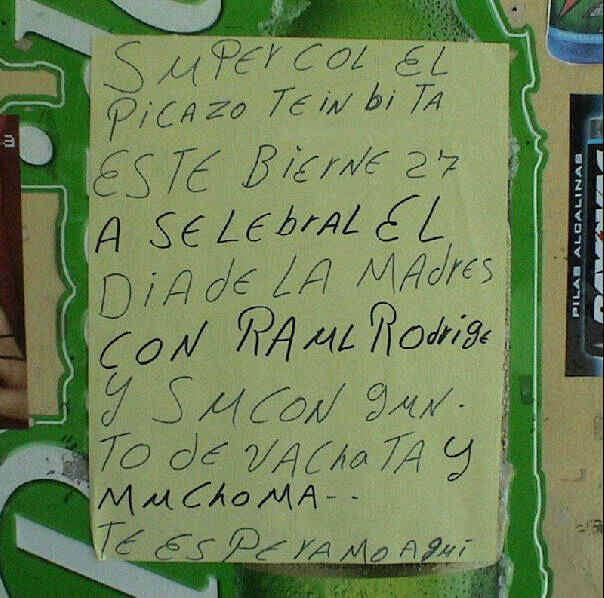 SUPER COL EL
PICAZO TE IN bi TA
ESTE BIERNE 27
A SELEbrAL EL
DIA dE LA MAdres
CON RAUL ROdrige
Y SU CON gun-
TO dE VAChaTA y
MUChO MA--
TE ESPERAMO Aqui
PILAS ALCALINAS